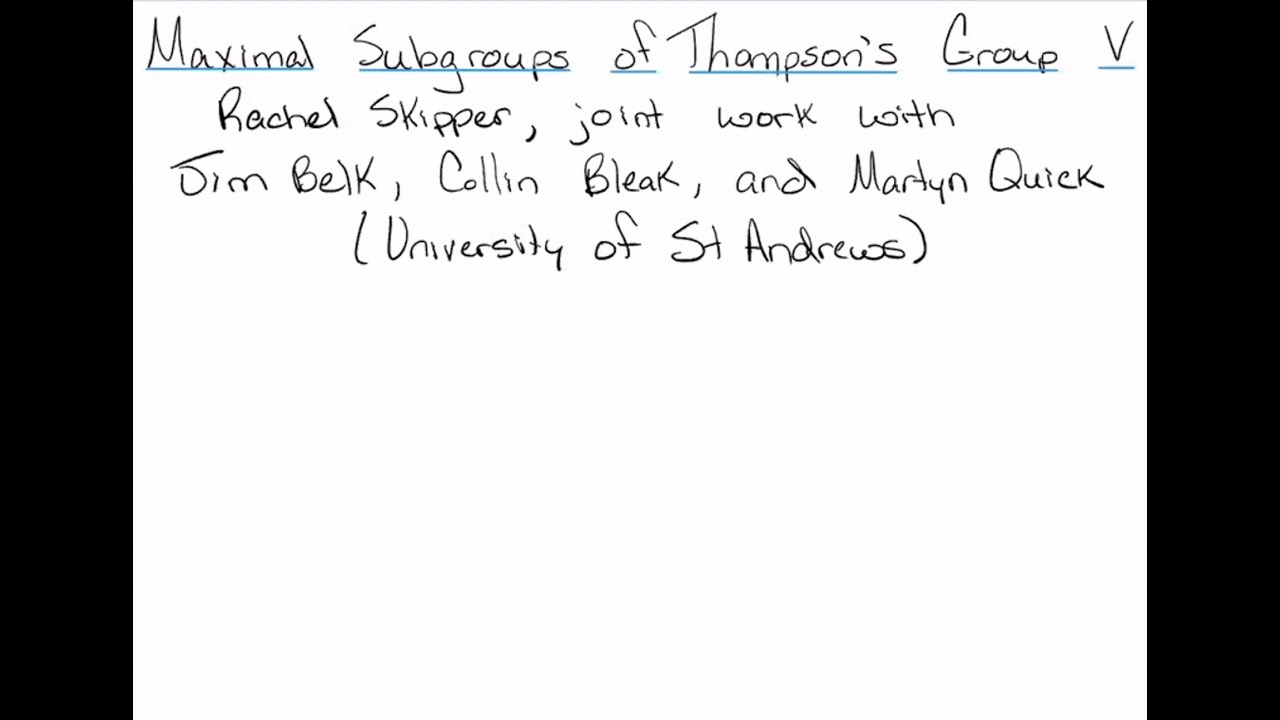 Maximal Subgroups of Thompson's Group V
Rachel Skipper, joint work with
Jim Belk, Collin Bleak, and Martyn Quick
(University of St Andrews)